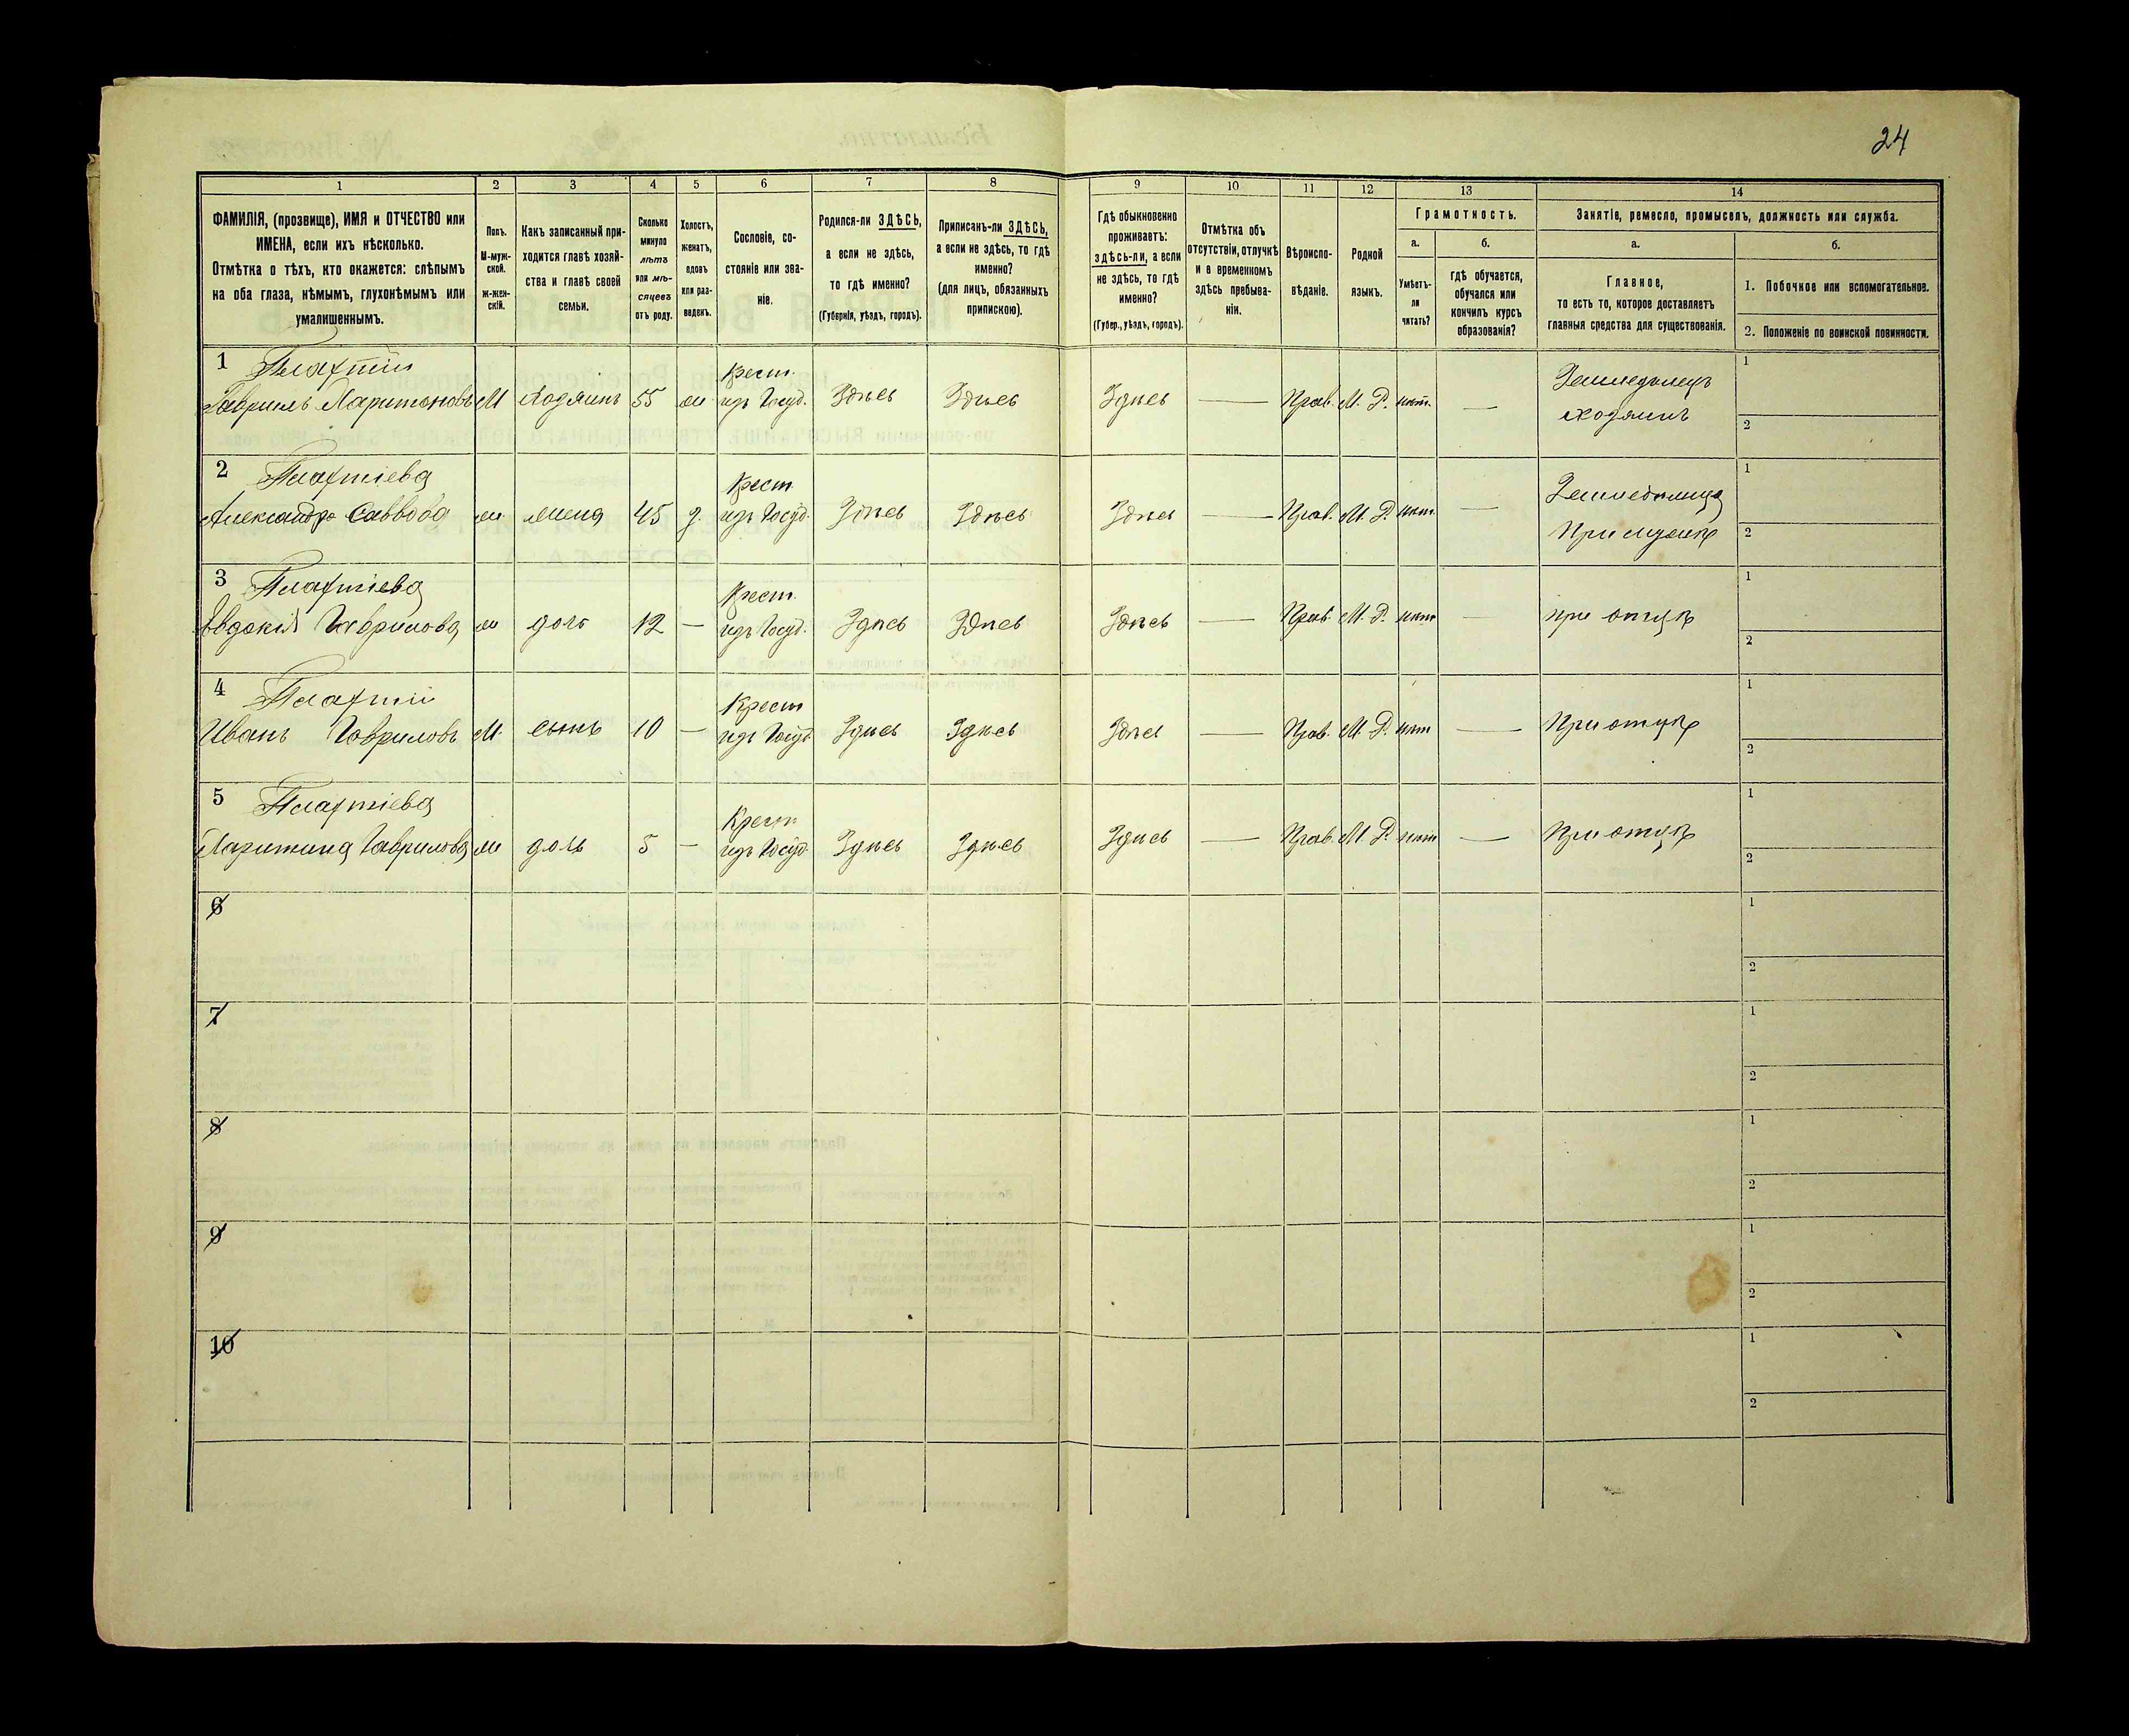 24
1 2 3 4 5 6 7 8 9 10 11 12 13 14
ФАМИЛІЯ, (прозвище), ИМЯ и ОТЧЕСТВО или
ИМЕНА, если ихъ нѣсколько.
Отмѣтка о тѣхъ, кто окажется: слѣпымъ
на оба глаза, нѣмымъ, глухонѣмымъ или
умалишеннымъ.
Полъ.
М-муж-
ской.
ж-жен-
скій.
Какъ записанный при-
ходится главѣ хозяй-
ства и главѣ своей
семьи.
Сколько
минуло
лѣтъ
или мѣ-
сяцевъ
отъ роду.
Холостъ,
женатъ,
вдовъ
или раз-
веденъ.
Сословіе, со-
стояніе или зва-
ніе.
Родился-ли ЗДѢСЬ,
а если не здѣсь,
то гдѣ именно?
(Губернія, уѣздъ, городъ).
Приписанъ-ли ЗДѢСЬ,
а если не здѣсь, то гдѣ
именно?
(для лицъ, обязанныхъ
припискою).
Гдѣ обыкновенно
проживаетъ:
здѣсь-ли, а если
не здѣсь, то гдѣ
именно?
(Губер., уѣздъ, городъ).
Отмѣтка объ
отсутствіи, отлучкѣ
и о временномъ
здѣсь пребыва-
ніи.
Вѣроиспо-
вѣданіе.
Родной
языкъ.
Грамотность.
а.
Умѣетъ-
ли
читать?
б.
гдѣ обучается,
обучался или
кончилъ курсъ
образованія?
Занятіе, ремесло, промыселъ, должность или служба.
а.
Главное,
то есть то, которое доставляетъ
главныя средства для существованія.
б.
1. Побочное или вспомогательное.
2. Положеніе по воинской повинности.
1 Крест. Земледѣлецъ 1
Гаврилъ Харитоновъ М Хозяинъ 55 изъ Госуд. Здѣсь Здѣсь Здѣсь — Прав. М. Р. нѣт. — хозяинъ 2
2 Крест 1
Александра 45 изъ Госуд. Здѣсь Здѣсь Здѣсь — Прав. М. Р. нѣт — При мужѣ 2
3 Крест. 1
Гаврилова дочь 12 — изъ Госуд. Здѣсь Здѣсь Здѣсь — Прав. М. Р. нѣт — при отцѣ 2
4 Крест 1
Иванъ Гавриловъ М. сынъ 10 — изъ Госуд Здѣсь Здѣсь Здѣсь — Прав. М. Р. нѣт — При отцѣ 2
5 Крест 1
Харитина Гаврилова дочь 5 — изъ Госуд Здѣсь Здѣсь Здѣсь — Прав. М. Р. нѣт — При отцѣ 2
6 1
2
7 1
2
8 1
2
9 1
2
10 1
2